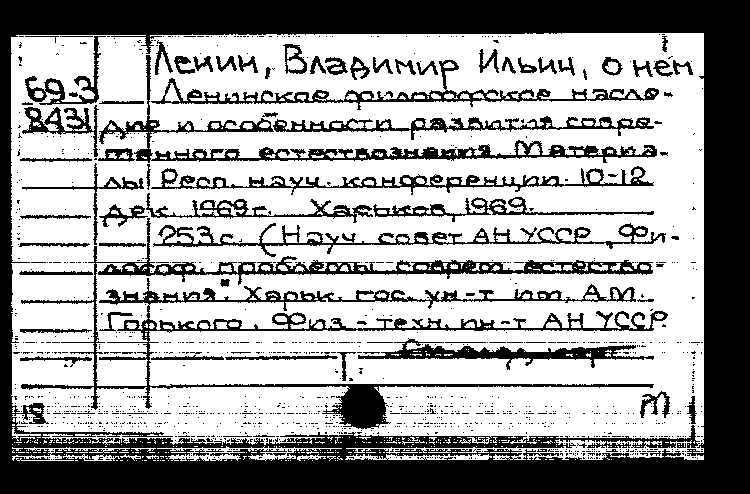 Ленин, Владимир Ильич, о нём.
69-3
8431
Ленинское философское насле-
дие и особенности развития совре-
менного естествознания. Материа-
лы Респ. науч. конференции. 10-12
дек. 1969 г. Харьков, 1969.
253 с. (Науч. совет АН УССР „Фи-
лософ. проблемы соврем. естество-
знания". Харьк. гос. ун-т им. А.М.
Горького. Физ.-техн. ин-т АН УССР.